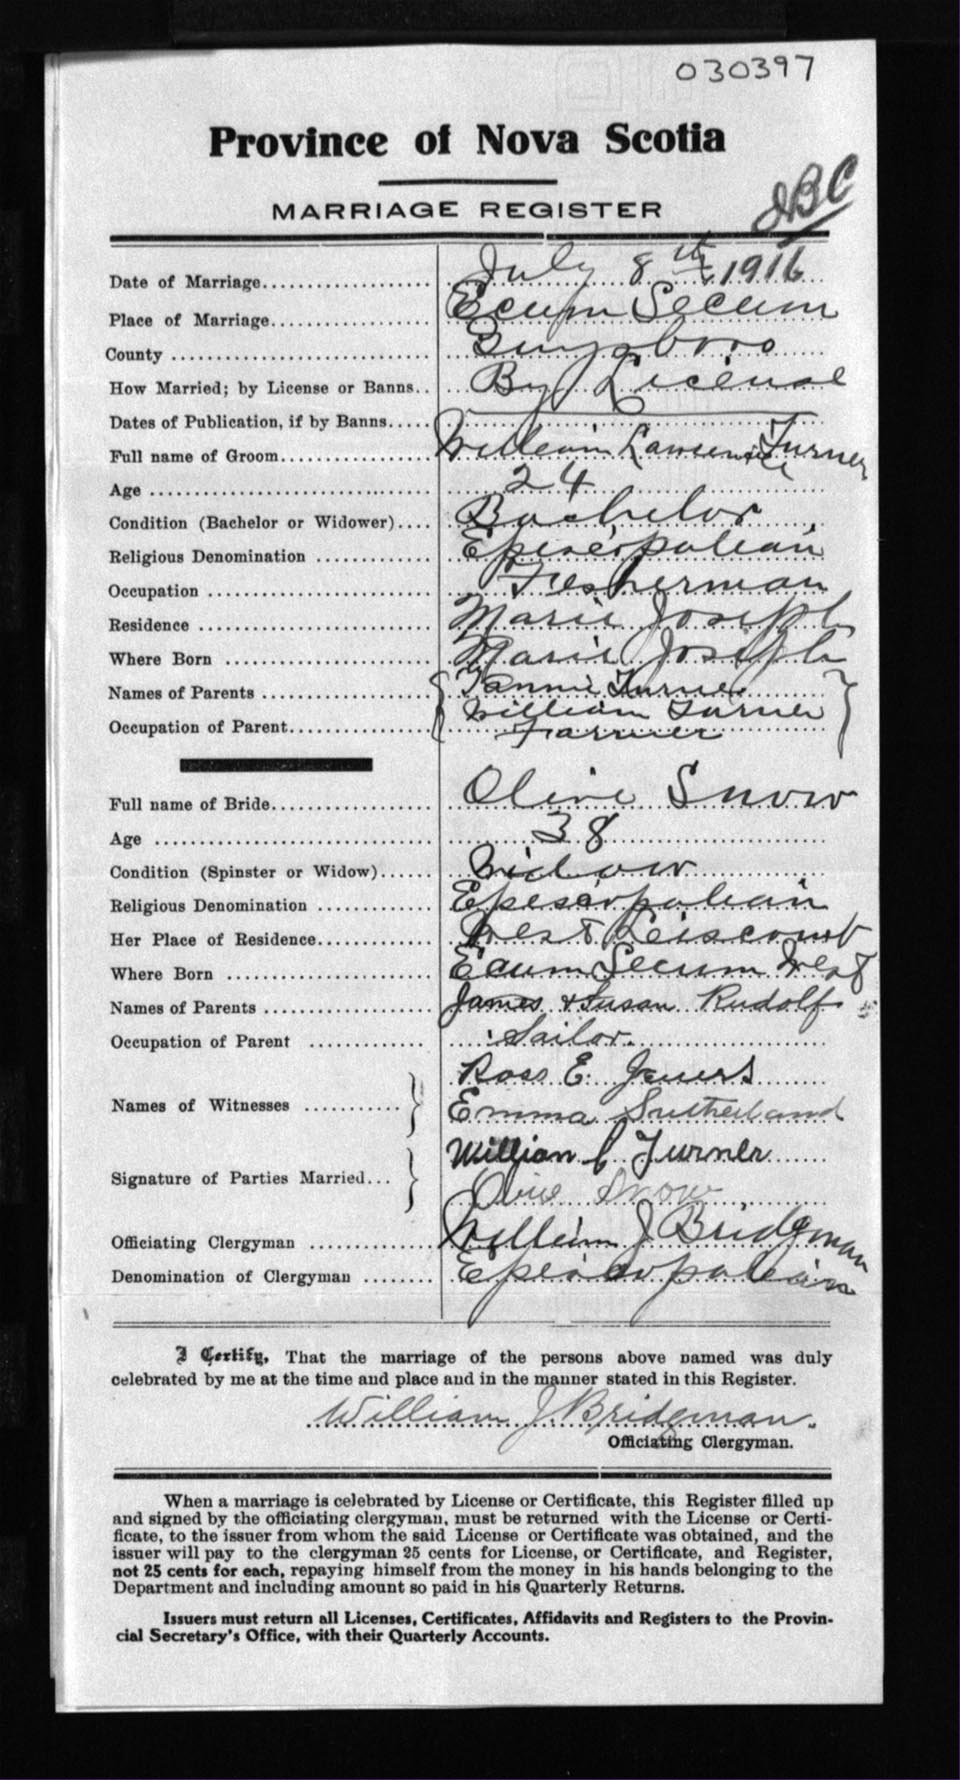 030397
Province of Nova Scotia
JBC
MARRIAGE REGISTER
Date of Marriage.................... July 8th 1916
Place of Marriage................... Ecum Secum
County ............................. Guysboro
How Married; by License or Banns.. By License
Dates of Publication, if by Banns.....
Full name of Groom.................. William Lawrence Turner
Age ................................ 24
Condition (Bachelor or Widower).... Bachelor
Religious Denomination ............. Episcopalian
Occupation ......................... Fisherman
Residence .......................... Marie Joseph
Where Born ......................... Marie Joseph
Names of Parents ................... Fannie Turner
William Turner
Occupation of Parent................ Farmer
Full name of Bride.................. Olive Snow
Age ................................ 38
Condition (Spinster or Widow)...... Widow
Religious Denomination ............. Episcopalian
Her Place of Residence.............. West Leiscomb
Where Born ......................... Ecum Secum West
Names of Parents ................... James & Susan Rudolf
Occupation of Parent ............. Sailor.
Ross E.
Names of Witnesses ...........
Emma Sutherland
William L Turner
Signature of Parties Married...
Olive Snow
Officiating Clergyman .............. William J Bridgman
Denomination of Clergyman ........ Episcopalian
I Certify, That the marriage of the persons above named was duly
celebrated by me at the time and place and in the manner stated in this Register.
William J. Bridgman.
Officiating Clergyman.
When a marriage is celebrated by License or Certificate, this Register filled up
and signed by the officiating clergyman, must be returned with the License or Certi-
ficate, to the issuer from whom the said License or Certificate was obtained, and the
issuer will pay to the clergyman 25 cents for License, or Certificate, and Register,
not 25 cents for each, repaying himself from the money in his hands belonging to the
Department and including amount so paid in his Quarterly Returns.
Issuers must return all Licenses, Certificates, Affidavits and Registers to the Provin-
cial Secretary's Office, with their Quarterly Accounts.